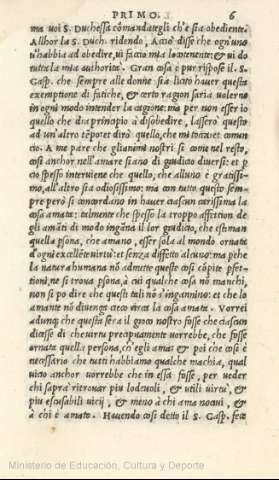 PRIMO. 6
ma voi S. Duchessa cōmandategli ch'e sia obediente.
Allhor la S. Duch. ridendo, Acciò disse che ogn'uno
v'habbia ad obedire, ui faccio mia locotenente: & ui do
tutta la mia authorità. Gran cosa è pur, rispose il. S.
Gasp. che sempre alle donne sia licito hauer questa
exemptione di fatiche, & certo ragion saria voler ne
in ogni modo intender la cagione; ma per non esser io
quello che dia principio à disobedire, lasserò questo
ad un'altro tēpo: et dirò quello, che mi tocca: et comin
cio. A me pare che gli animi nostri si come nel resto,
cosi anchor nell'amare siano di giudicio diuersi: et p
cio spesso interuiene che quello, che all'uno è gratissi-
mo, all'altro sia odiosissimo: ma con tutto questo sem-
pre però si concordano in hauer ciascun carissima la
cosa amata: talmente che spesso la troppo affettion de
gli amāti di modo ingāna il lor giudicio, che estiman
quella psona, che amano, esser sola al mondo ornata
d'ogni excellēte uirtù: et senza diffetto alcuno: ma pche
la natura humana nō admette queste cosi cōpite pfet-
tioni, ne si troua psona, à cui qualche cosa nō manchi,
non si po dire che questi tali nō s'ingannino: et che lo
amante nō diuenga cieco circa la cosa amata. Vorrei
adunq; che questa sera il gioco nostro fosse che ciascun
dicesse di che uirtu precipuamente vorrebbe, che fosse
ornata quella persona, ch'egli ama: & poi che cosi è
necessario che tutti habbiamo qualche machia, qual
vicio anchor vorrebbe che in essa fosse, per veder
chi saprà ritrouar piu lodeuoli, & utili uirtù, &
piu escusabili uicij, & meno à chi ama nocui, &
à chi è amato. Hauendo cosi detto il S. Gasp. fece
Ministerio de Educación, Cultura y Deporte